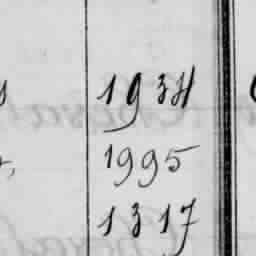 1934
1995
1317